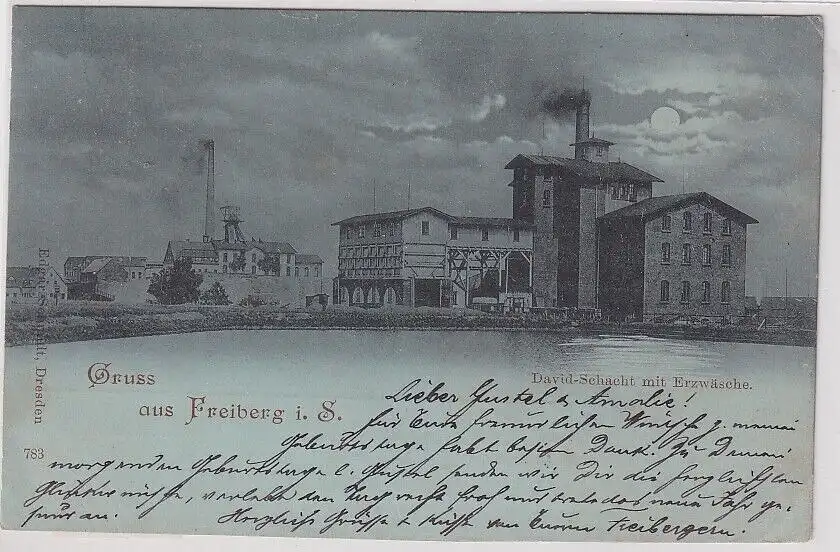 Gruss
aus Freiberg i. S.
David-Schacht mit Erzwäsche.
Edgar Schmidt, Dresden
783
Lieber Gustel & Amalie!
für Eure freundlichen Wünsche z. meinem
Geburtstage habt besten Dank. Zu Deinem
morgenden Geburtstage l. Gustel senden wir Dir die herzlichsten
Glückwünsche, verlebt den Tag recht froh und trete das neue Jahr ge-
sund an. Herzliche Grüsse & Küsse von Euern Freibergern.